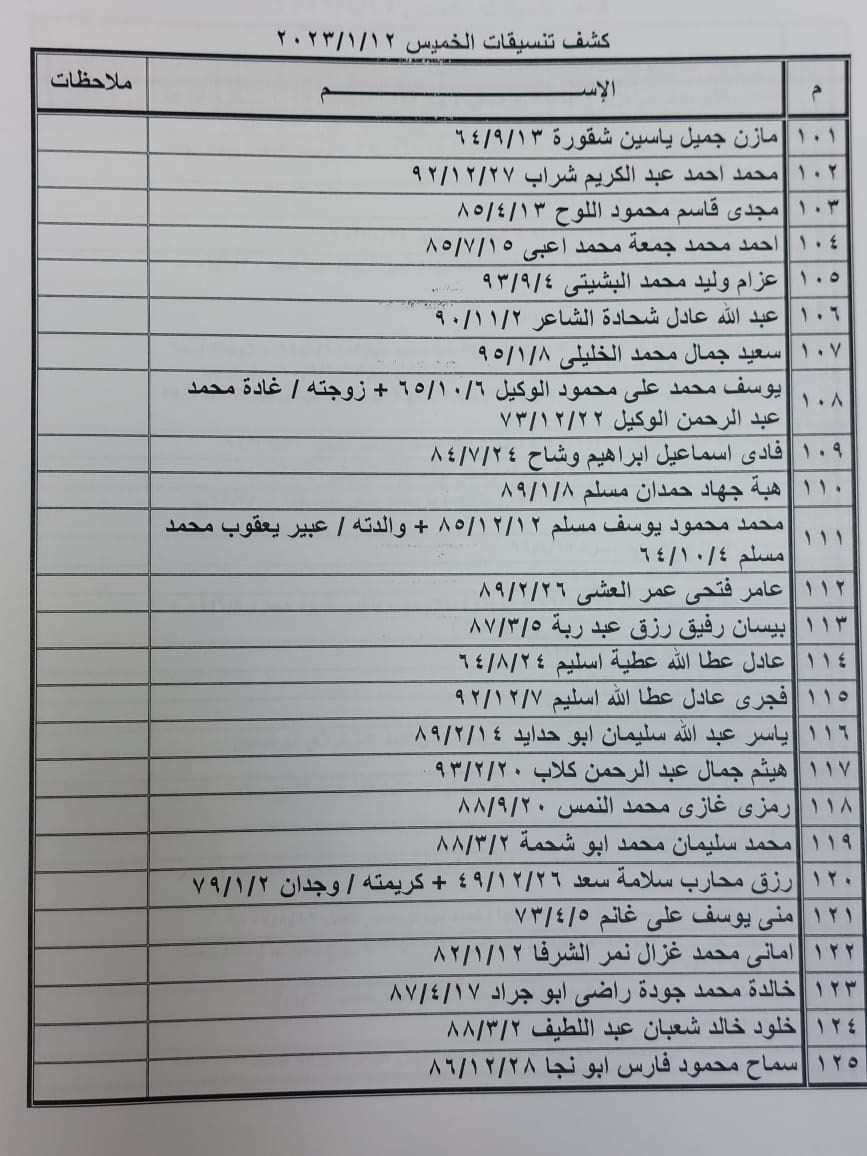 كشف تنسيقات الخميس ٢٠٢٣/١/١٢
م الإســـــــم ملاحظات
١٠١ مازن جميل ياسين شقورة ٦٤/٩/١٣
١٠٢ محمد احمد عبد الكريم شراب ٩٢/١٢/٢٧
١٠٣ مجدى قاسم محمود اللوح ٨٥/٤/١٣
١٠٤ احمد محمد جمعة محمد اعبى ٨٥/٧/١٥
١٠٥ عزام وليد محمد البشيتى ٩٣/٩/٤
١٠٦ عبد الله عادل شحادة الشاعر ٩٠/١١/٢
١٠٧ سعيد جمال محمد الخليلى ٩٥/١/٨
١٠٨ يوسف محمد على محمود الوكيل ٦٥/١٠/٦ + زوجته / غادة محمد
عبد الرحمن الوكيل ٧٣/١٢/٢٢
١٠٩ فادى اسماعيل ابراهيم وشاح ٨٤/٧/٢٤
١١٠ هبة جهاد حمدان مسلم ٨٩/١/٨
١١١ محمد محمود يوسف مسلم ٨٥/١٢/١٢ + والدته / عبير يعقوب محمد
مسلم ٦٤/١٠/٤
١١٢ عامر فتحى عمر العشى ٨٩/٢/٢٦
١١٣ بيسان رفيق رزق عبد ربة ٨٧/٣/٥
١١٤ عادل عطا الله عطية اسليم ٦٤/٨/٢٤
١١٥ فجرى عادل عطا الله اسليم ٩٢/١٢/٧
١١٦ ياسر عبد الله سليمان ابو حدايد ٨٩/٢/١٤
١١٧ هيثم جمال عبد الرحمن كلاب ٩٣/٢/٢٠
١١٨ رمزى غازى محمد النمس ٨٨/٩/٢٠
١١٩ محمد سليمان محمد ابو شحمة ٨٨/٣/٢
١٢٠ رزق محارب سلامة سعد ٤٩/١٢/٢٦ + كريمته / وجدان ٧٩/١/٢
١٢١ منى يوسف على غانم ٧٣/٤/٥
١٢٢ امانى محمد غزال نمر الشرفا ٨٢/١/١٢
١٢٣ خالدة محمد جودة راضى ابو جراد ٨٧/٤/١٧
١٢٤ خلود خالد شعبان عبد اللطيف ٨٨/٣/٢
١٢٥ سماح محمود فارس ابو نجا ٨٦/١٢/٢٨